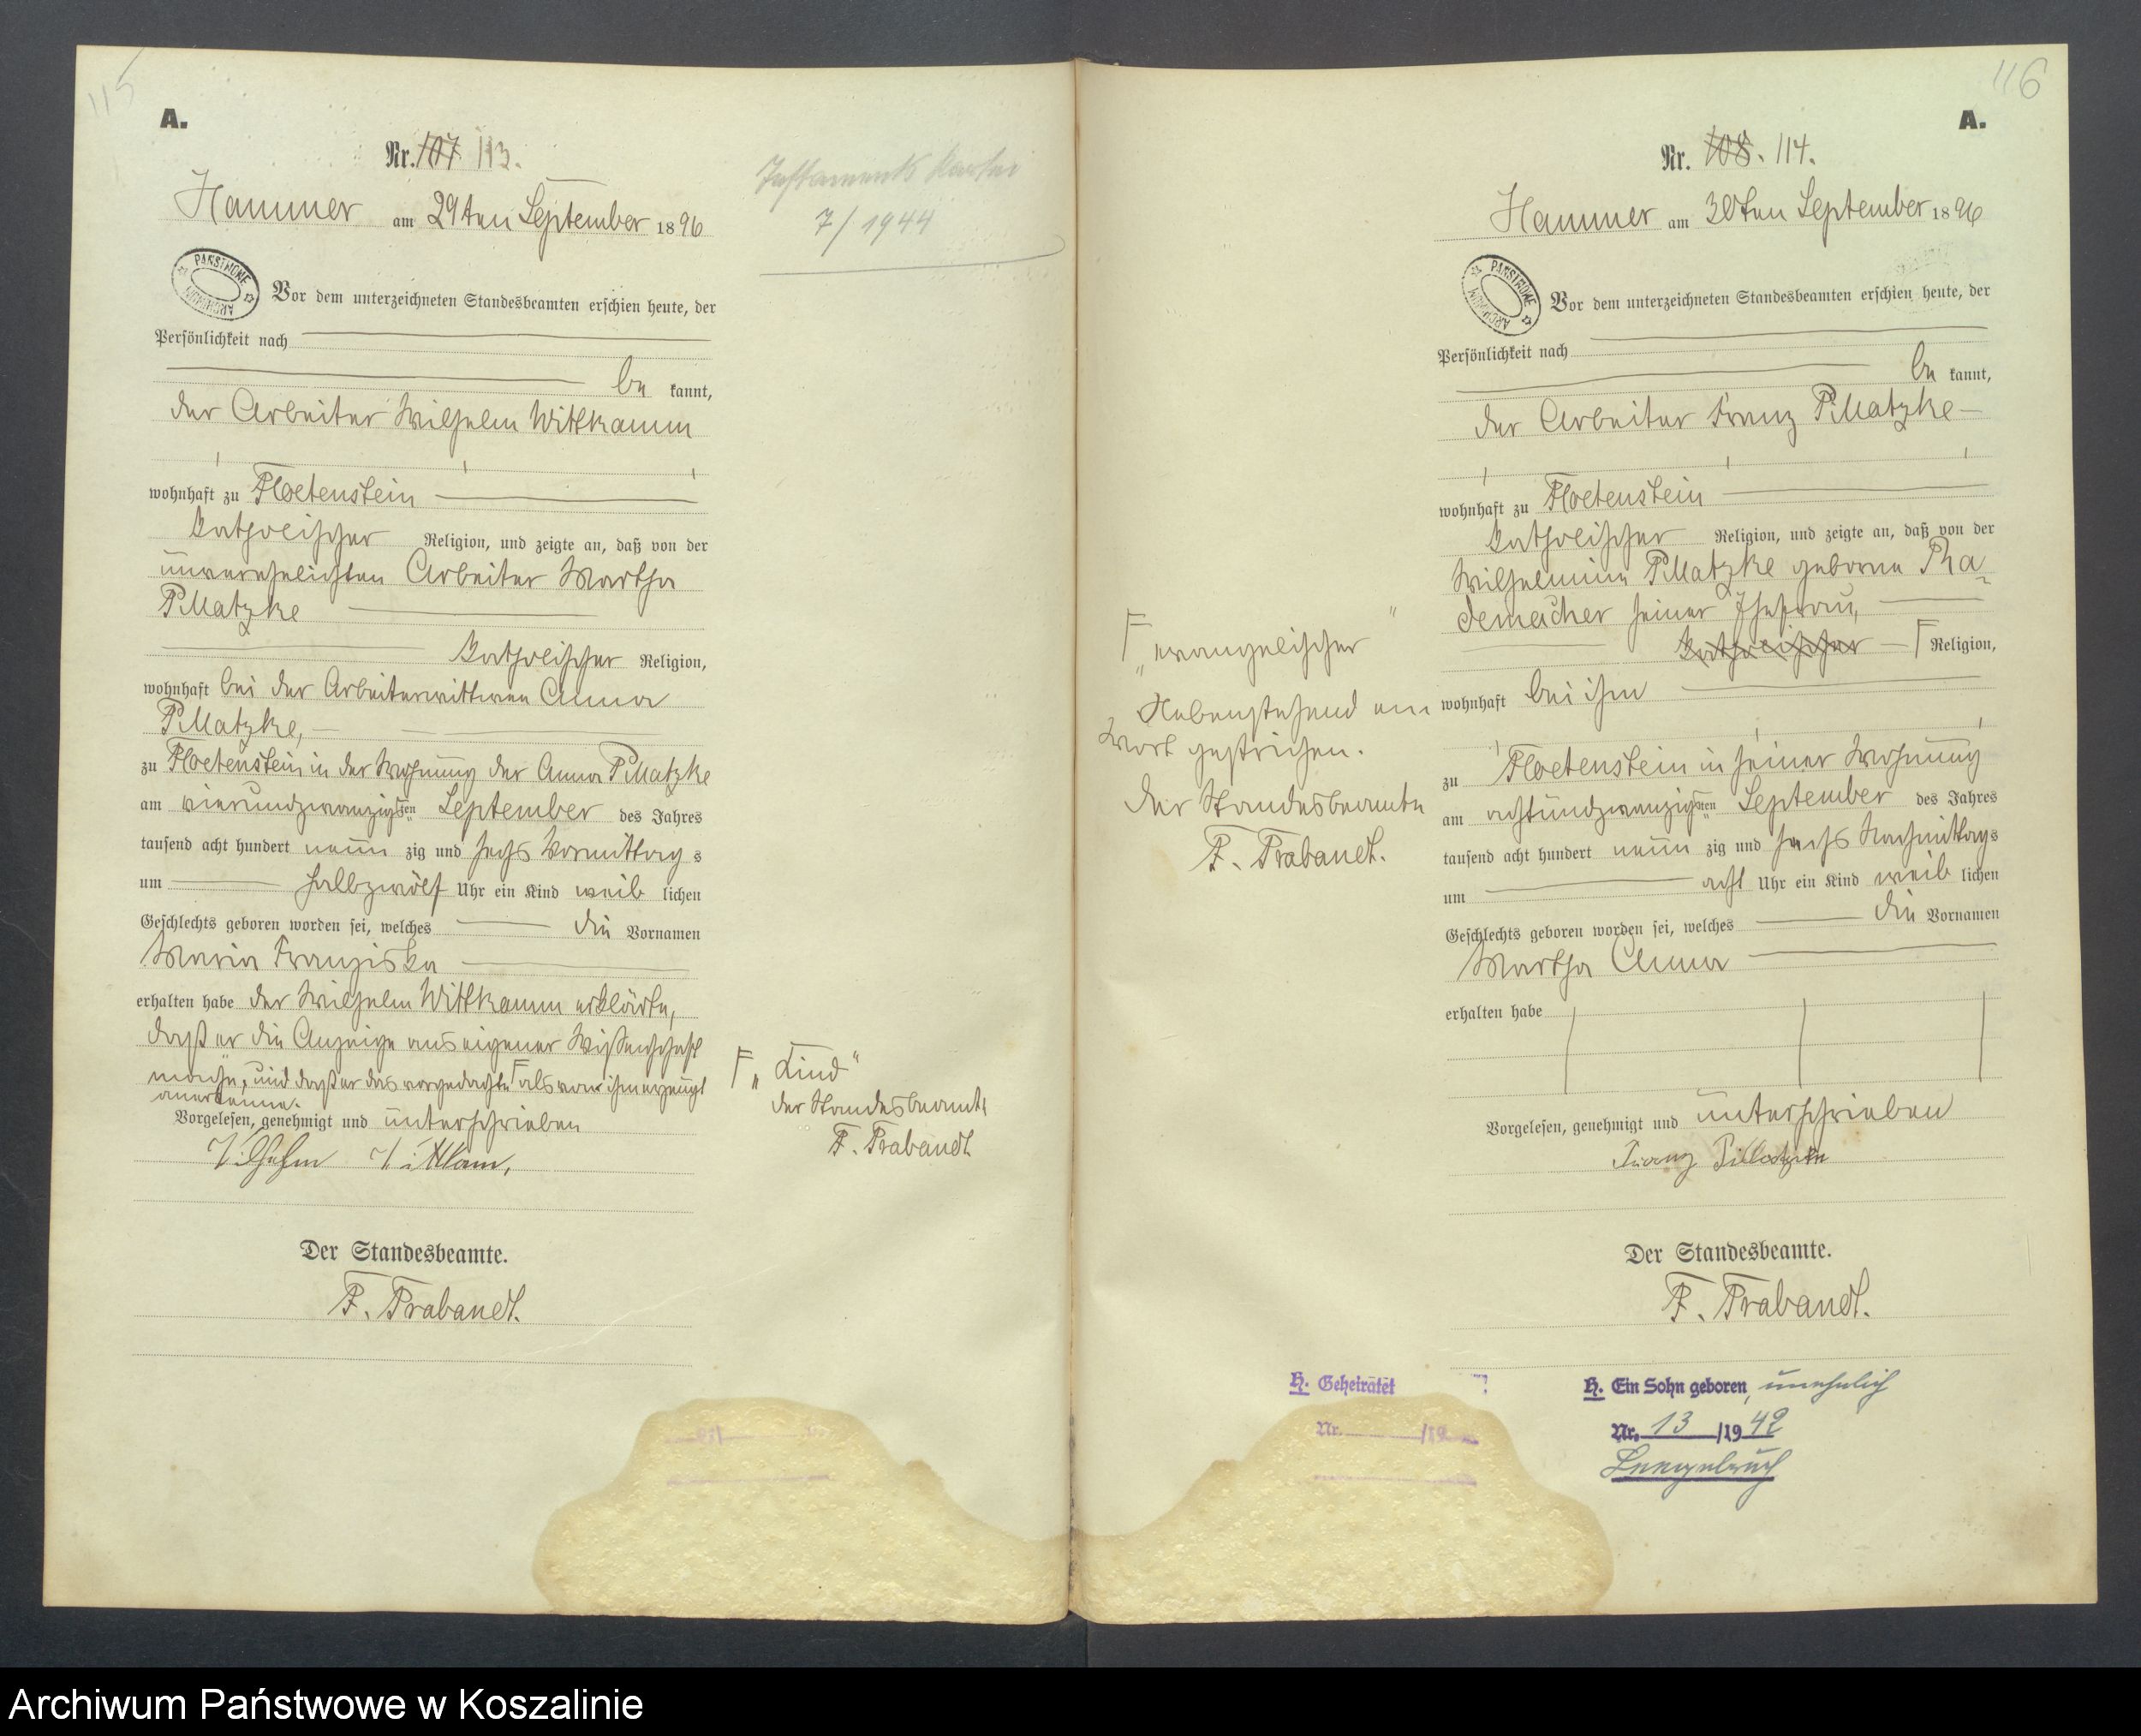 115
A.
Nr. 107 113.
Hammer am 29ten September 1896
Testaments Kartei
7/1944
PAŃSTWOWE
ARCHIWUM
Vor dem unterzeichneten Standesbeamten erschien heute, der
Persönlichkeit nach
be kannt,
der Arbeiter Wilhelm Wittkamm
wohnhaft zu Floetenstein
katholischer Religion, und zeigte an, daß von der
unverehelichten Arbeiter Martha
Pillatzke
katholischer Religion,
wohnhaft bei der Arbeiterwittwe Anna
Pillatzke,
zu Floetenstein in der Wohnung der Anna Pillatzke
am vierundzwanzigsten September des Jahres
tausend acht hundert neun zig und sechs Vormittags
um halbzwölf Uhr ein Kind weib lichen
Geschlechts geboren worden sei, welches die Vornamen
Maria Franziska
erhalten habe der Wilhelm Wittkamm erklärte,
daß er die Anzeige aus eigener Wissenschaft
mache, und daß er das vorgedachte F als von ihm erzeugt
anerkenne.
Vorgelesen, genehmigt und unterschrieben
Wilhelm Wittkam,
F „Kind“
der Standesbeamte
F. Trabandt
Der Standesbeamte.
F. Trabandt.
116
A.
Nr. 108. 114.
Hammer am 30ten September 1896
PAŃSTWOWE
ARCHIWUM
Vor dem unterzeichneten Standesbeamten erschien heute, der
Persönlichkeit nach
be kannt,
der Arbeiter Franz Pillatzke
wohnhaft zu Floetenstein
katholischer Religion, und zeigte an, daß von der
Wilhelmine Pillatzke geborne Ra
demacher seiner Ehefrau,
katholischer F Religion,
wohnhaft bei ihm
zu Floetenstein in seiner Wohnung
am achtundzwanzigsten September des Jahres
tausend acht hundert neun zig und sechs Nachmittags
um acht Uhr ein Kind weib lichen
Geschlechts geboren worden sei, welches die Vornamen
Martha Anna
erhalten habe
Vorgelesen, genehmigt und unterschrieben
Franz Pillatzke
F „evangelischer“
Nebenstehend ein
Wort gestrichen.
Der Standesbeamte
F. Trabandt.
Der Standesbeamte.
F. Trabandt.
H. Geheiratet
Nr. /19
H. Ein Sohn geboren, unehelich
Nr. 13 /1942
Archiwum Państwowe w Koszalinie